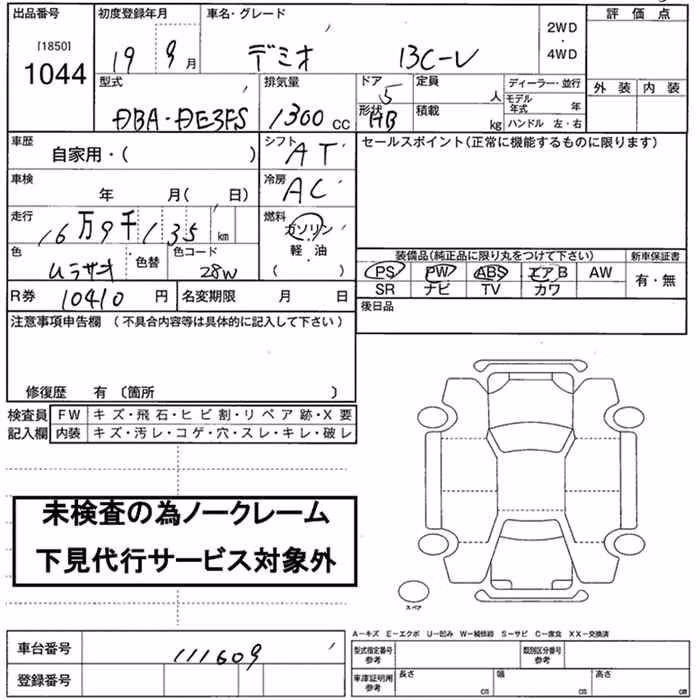 出品番号 初度登録年月 車名・グレード 評価点
[1850] 1044 19 9月 デミオ 13C-V 2WD・4WD
型式 排気量 ドア 定員 ディーラー・並行 外装 内装
DBA・DE3FS 1300 CC 5 人 モデル年式 年
形状 HB 積載 kg ハンドル 左・右
車歴 シフト セールスポイント(正常に機能するものに限ります)
自家用・( ) AT
車検 冷房
年 月( 日) AC
走行 燃料
16万9千135 km ガソリン・軽油
色 色替 色コード ( )
ムラサキ 28W
装備品(純正品に限り丸をつけて下さい) 新車保証書
PS PW ABS エアB AW 有・無
SR ナビ TV カワ
R券 10410円 名変期限 月 日 後日品
注意事項申告欄 (不具合内容等は具体的に記入して下さい)
修復歴 有 〔箇所 〕
検査員 FW キズ・飛石・ヒビ割・リペア跡・X要
記入欄 内装 キズ・汚レ・コゲ・穴・スレ・キレ・破レ
未検査の為ノークレーム
下見代行サービス対象外
スペア
A-キズ E-エクボ U-凹み W-補修跡 S-サビ C-腐食 XX-交換済
車台番号 111609
型式指定番号 参考 類別区分番号 参考
登録番号
車庫証明用 参考 長さ cm 幅 cm 高さ cm